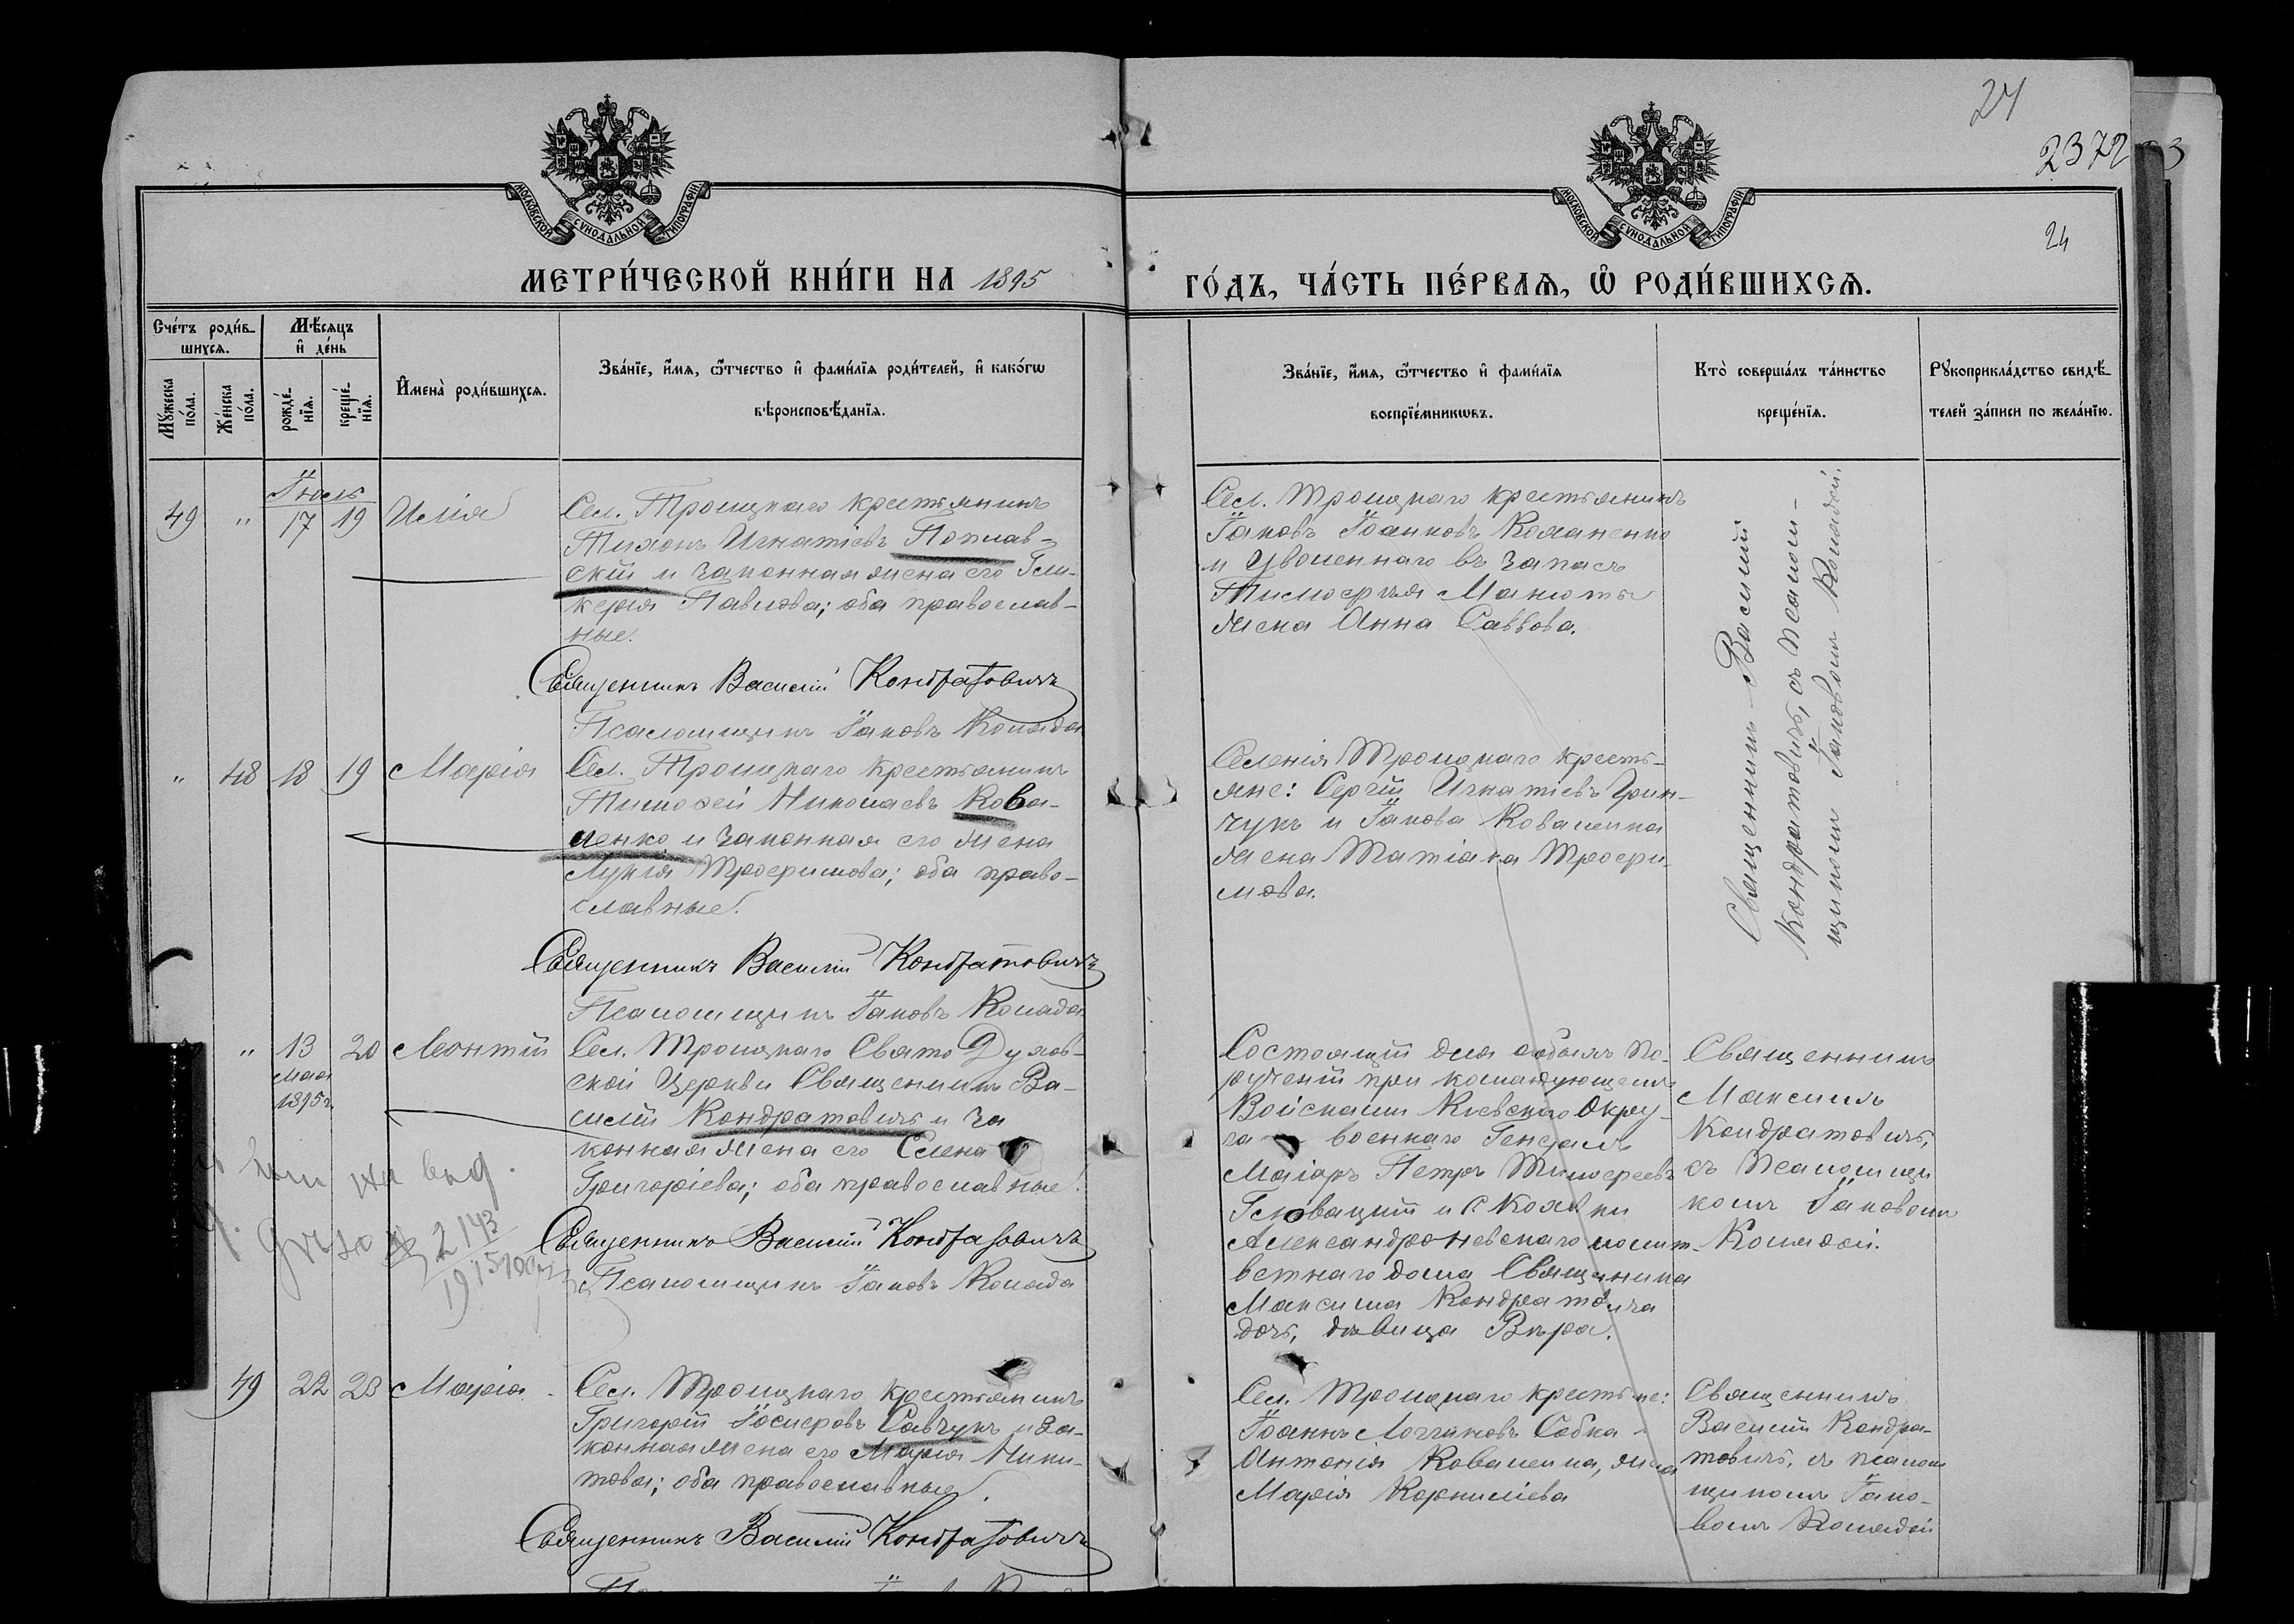 24
2372
3
24
МОСКОВСКОЙ СѴНОДАЛЬНОЙ ТИПОГРАФІИ
МОСКОВСКОЙ СѴНОДАЛЬНОЙ ТИПОГРАФІИ
МЕТРИ́ЧЕСКОЙ КНИ́ГИ НА 1895
ГО́ДЪ, ЧА́СТЬ ПЕ́РВАѦ, Ѡ҆ РОДИ́ВШИХСѦ.
Сче́тъ роди́в-
шихсѧ.
Мѣ́сѧцъ
и҆ де́нь
Мꙋ́жеска
по́ла.
Же́нска
по́ла.
рожде́-
нїѧ.
креще́-
нїѧ.
И҆мена̀ роди́вшихсѧ.
Зва́нїе, и҆́мѧ, ѻ҆́тчество и҆ фами́лїѧ роди́телей, и҆ како́гѡ
вѣроисповѣ́данїѧ.
Зва́нїе, и҆́мѧ, ѻ҆́тчество и҆ фами́лїѧ
воспрїе́мникѡвъ.
Кто̀ соверша́лъ та́инство
креще́нїѧ.
Рꙋкоприкла́дство свидѣ́-
телей за́писи по жела́нїю.
Іюль
49 " 17 19 Илія
Сел. Троицкаго крестьянинъ
Тихонъ Игнатіевъ Поплав-
скій и законная жена его Гли-
керія Павлова; оба православ-
ные.
Священникъ Василій Кондратовичъ
Псаломщикъ Іаковъ Коляда
Сел. Троицкаго крестьянинъ
Іаковъ Іоанновъ
и уволеннаго въ запасъ
Тимоѳея
жена Анна Саввова.
Священникъ Василій
Кондратовичъ, съ псалом-
щикомъ Іаковомъ Колядой.
" 48 18 19 Марія
Сел. Троицкаго крестьянинъ
Тимоѳей Николаевъ Кова-
ленко и законная его жена
Лукія Трофимова; оба право-
славные.
Священникъ Василій Кондратовичъ
Псаломщикъ Іаковъ Коляда
Селенія Троицкаго кресть-
яне: Сергій Игнатіевъ Грин-
чукъ и Іакова Коваленка
жена Татіана Трофи-
мова.
" 13 20 Леонтій
мая
1895 г.
Сел. Троицкаго Свято Духов-
ской Церкви Священникъ Ва-
силій Кондратовичъ и за
конная жена его Елена
Григоріева; оба православные.
Священникъ Василій Кондратовичъ
Псаломщикъ Іаковъ Коляда
2143
1915
Состоящій для особыхъ по-
рученій при командующемъ
Войсками Кіевскаго Окру-
га военнаго Генералъ
Маіоръ Петръ Тимоѳеевъ
и
Александроневскаго
дома Священника
Максима Кондратовича
дочь, дѣвица Вѣра.
Священникъ
Максимъ
Кондратовичъ,
съ Псаломщи
комъ Іаковомъ
Колядой.
49 22 23 Марія
Сел. Троицкаго крестьянинъ
Григорій Іосифовъ Савчукъ и за-
конная жена его Марія Ники-
това; оба православные.
Священникъ Василій Кондратовичъ
Сел. Троицкаго крестьяне:
Іоаннъ Собка
Антонія Коваленка, жена
Марія Корниліева
Священникъ
Василій Кондра-
товичъ, съ псалом
щикомъ Іако-
вомъ Колядой